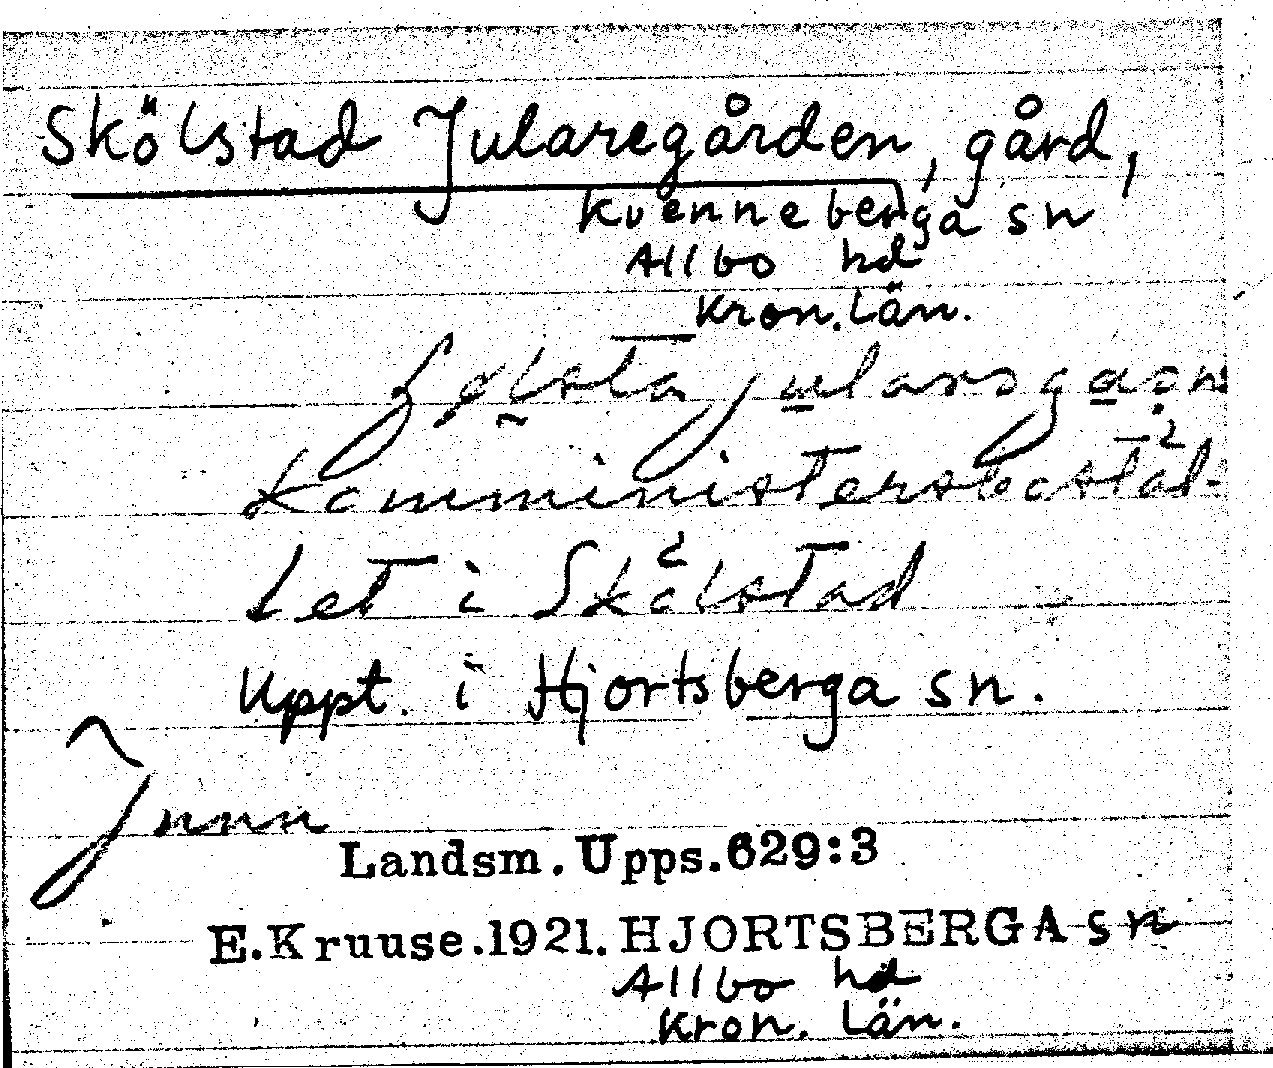 Skölstad Jularegården, gård,
Kvenneberga sn
Allbo hd
Kron. län.
Komministersbostäl-
let i Skölstad
Uppt. i Hjortsberga sn.
Landsm. Upps. 629:3
E. Kruuse. 1921. HJORTSBERGA sn
Allbo hd
Kron. län.